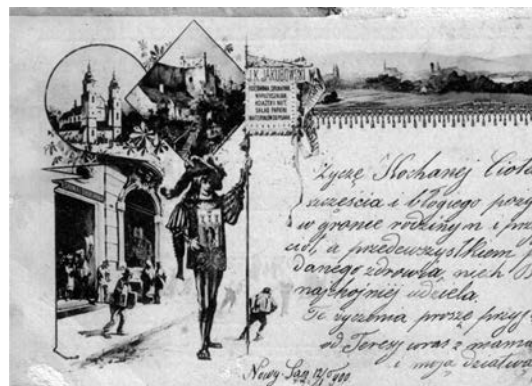 J.K. JAKUBOWSKI
KSIĄŻEK I NUT
SKŁAD PAPIERU
Życzę Kochanej Ciote
szczęścia i błogiego poży
w gronie rodzinnym i prz
ciół, a przedewszystkiem p
danego zdrowia, niech B
najhojniej udziela.
Te życzenia proszę przyj
od Teresy wraz z mamą
i moją dziatwą
Nowy-Sącz 12/5 900